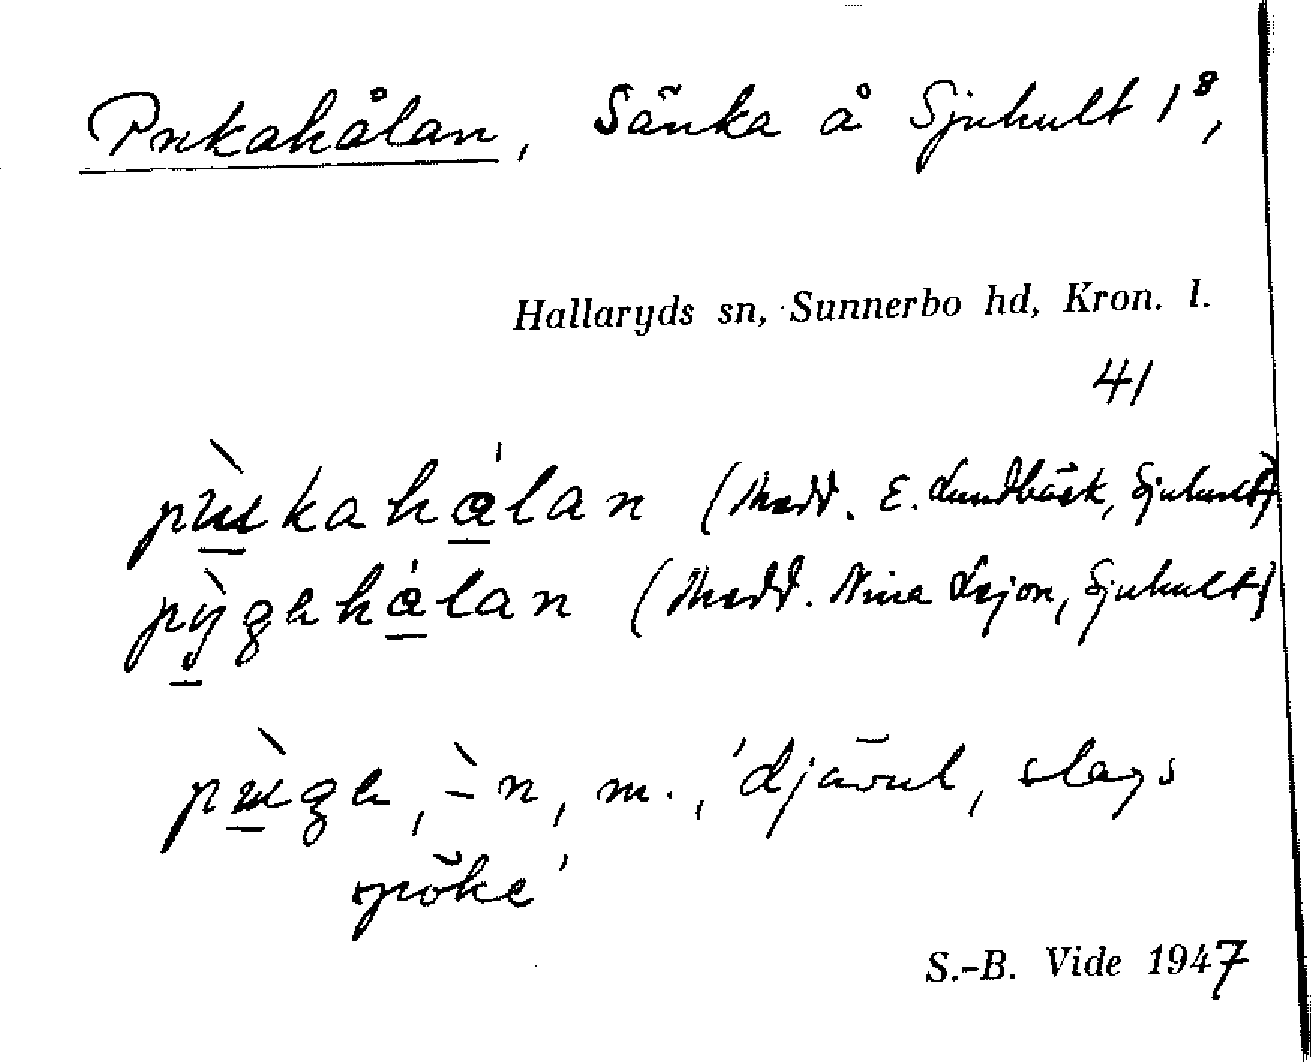 Pukahålan, Sänka å Sjuhult 1⁸,
Hallaryds sn, Sunnerbo hd, Kron. l.
41
pɯ̀kahálan (Medd. E. Lundbäck, Sjuhult)
pỳgehálan (Medd. Nina Lejon, Sjuhult)
pɯ̀ge, -̀n, m., 'djävul, slags
spöke'
S.-B. Vide 1947